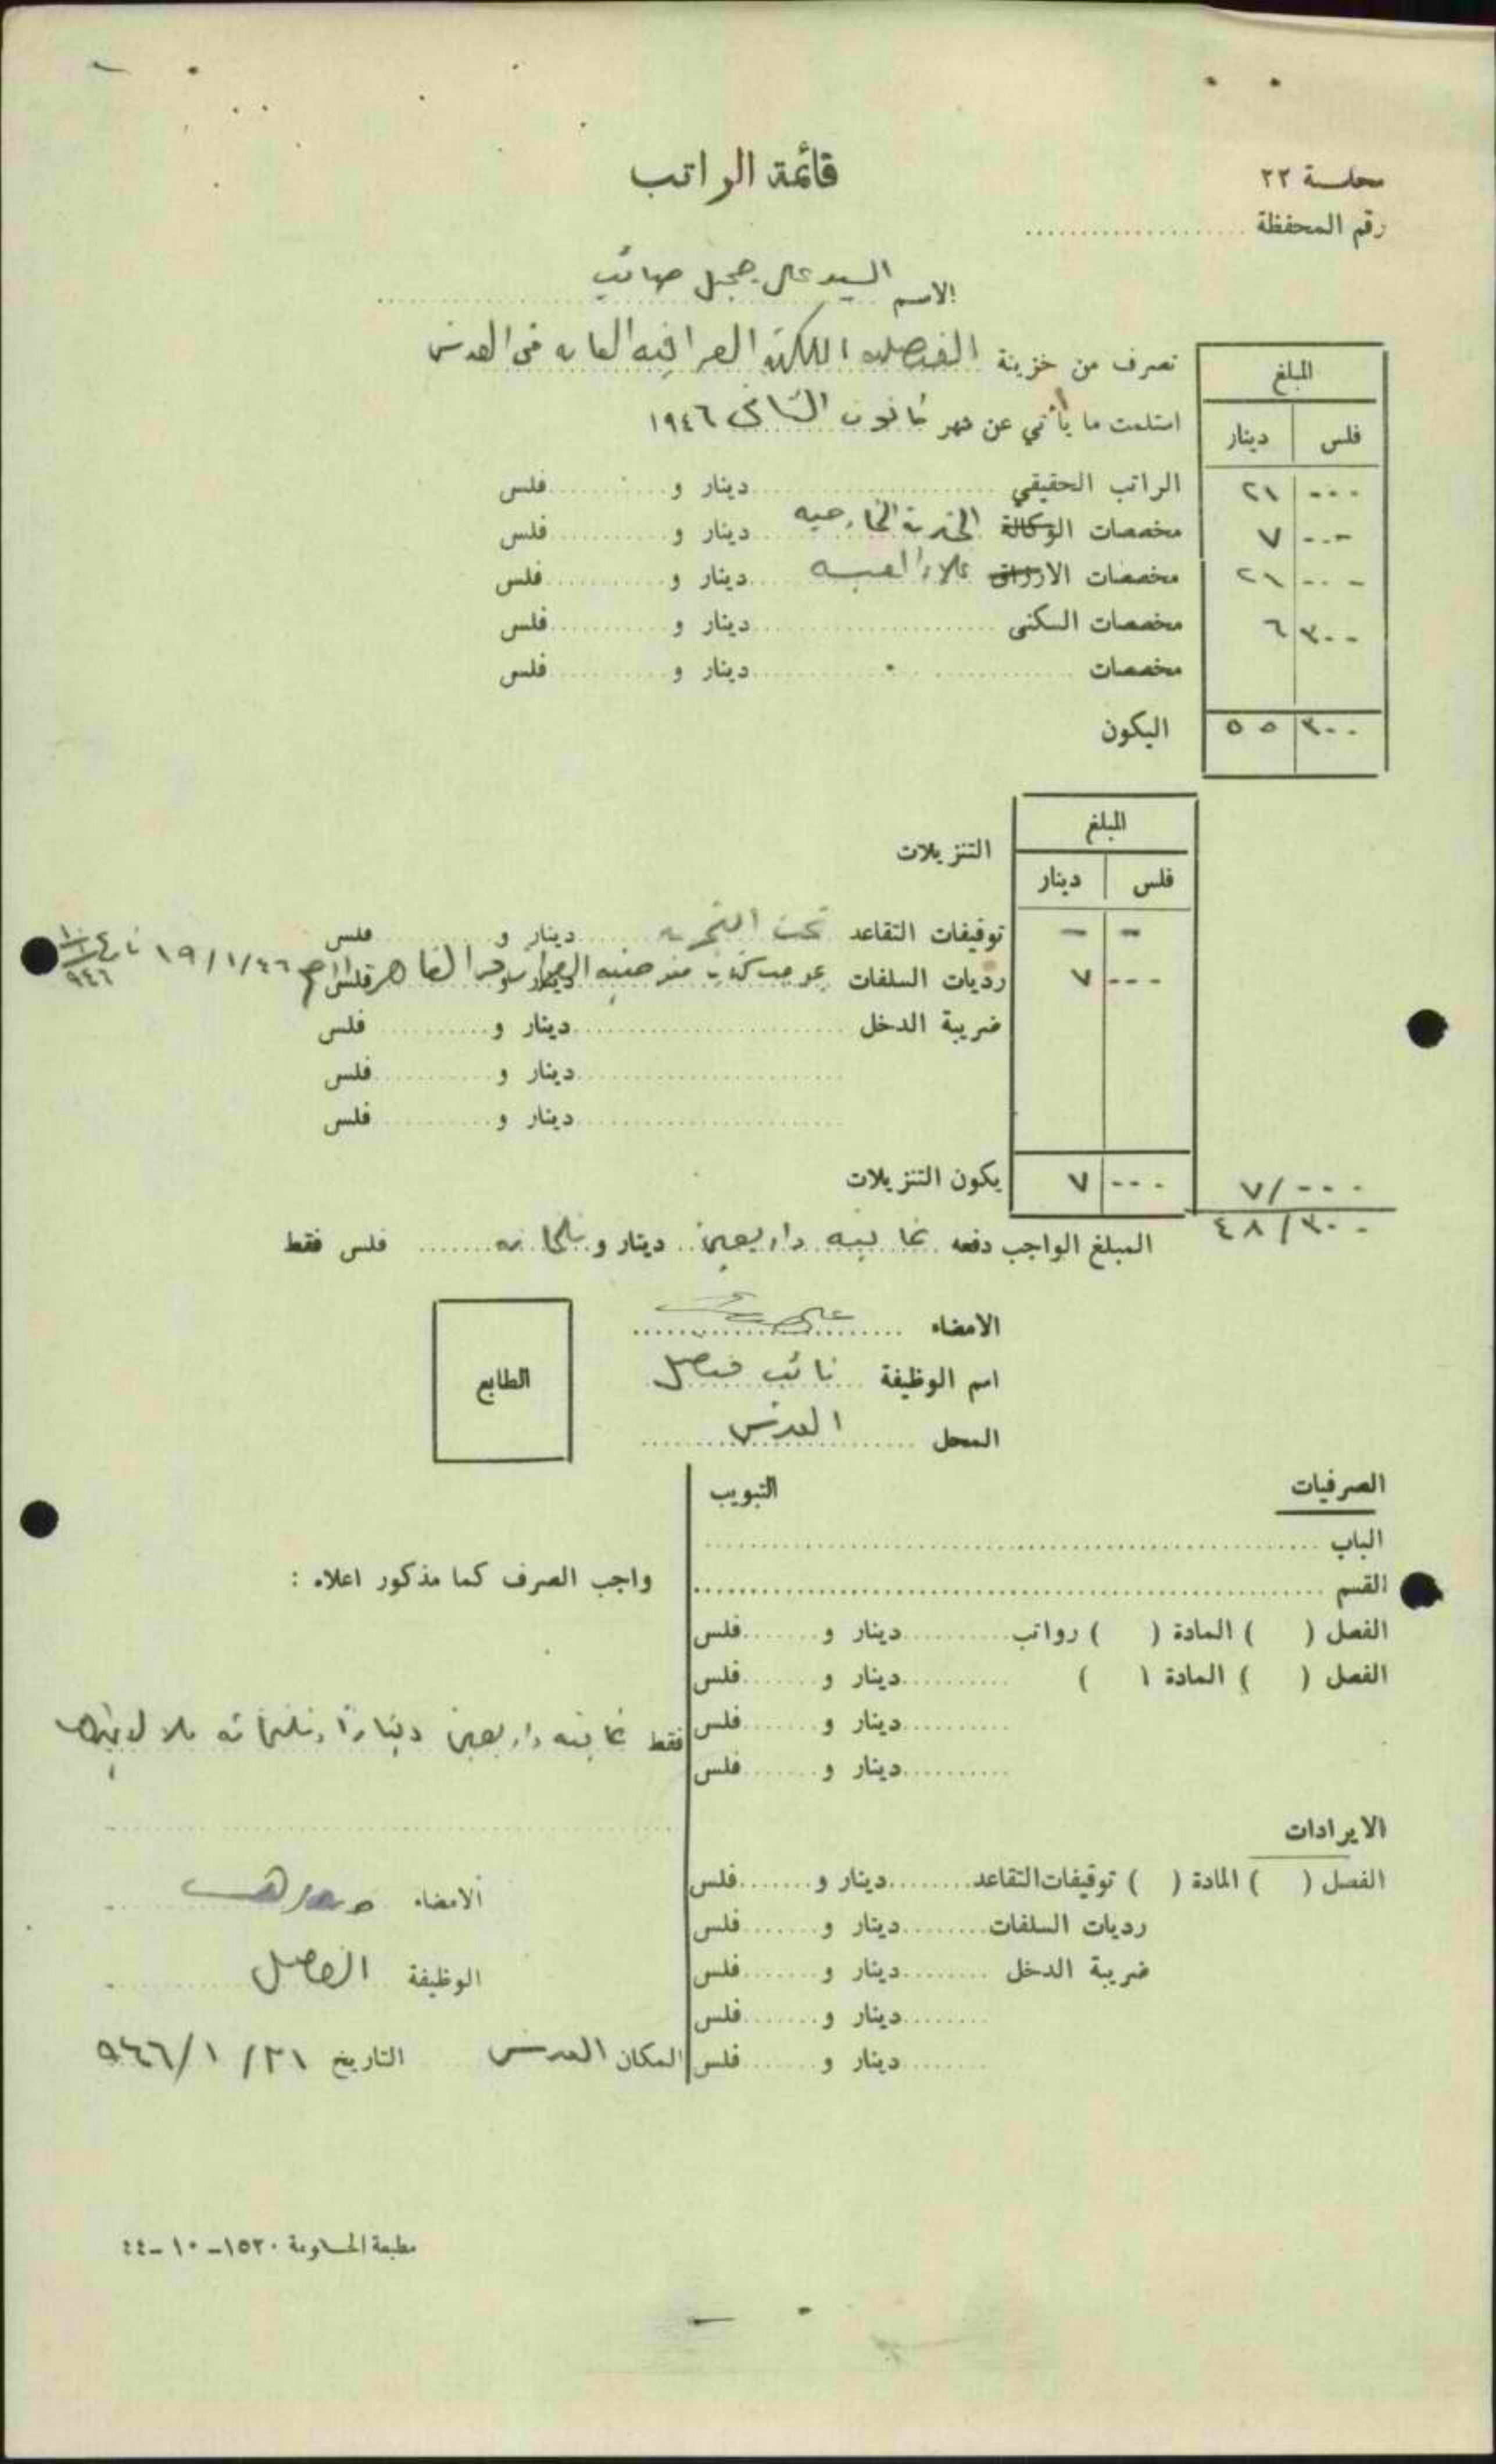 محاسبة ٢٢
رقم المحفظة ....................
قائمة الراتب
الاسم السيد علي جميل صائب
تصرف من خزينة القنصلية الملكية العراقية العامة في القدس
استلمت ما يأتي عن شهر كانون الثاني ١٩٤٦
المبلغ
فلس دينار
الراتب الحقيقي ........ دينار و ........ فلس ٠٠٠ ٢١
مخصصات الوكالة الخدمة الخارجية دينار و ........ فلس ٠٠٠ ٧
مخصصات الارزاق غلاء المعيشة دينار و ........ فلس ٠٠٠ ٢١
مخصصات السكنى ........ دينار و ........ فلس ٣٠٠ ٦
مخصصات ........ دينار و ........ فلس
اليكون ٣٠٠ ٥٥
المبلغ
التنزيلات
فلس دينار
توقيفات التقاعد تحت التجربة دينار و ........ فلس - -
رديات السلفات بموجب كتاب مفوضية القاهرة دينار و فلس ١٩/١/٤٦ ٩٤٦ ٠٠٠ ٧
ضريبة الدخل ........ دينار و ........ فلس
........ دينار و ........ فلس
........ دينار و ........ فلس
يكون التنزيلات ٠٠٠ ٧ ٧/٠٠٠
٤٨/٣٠٠
المبلغ الواجب دفعه ثمانية واربعين دينار و ثلثمائة ........ فلس فقط
الامضاء
اسم الوظيفة نائب قنصل
المحل القدس
الطابع
الصرفيات التبويب
الباب ........
القسم ........
الفصل ( ) المادة ( ) رواتب ........ دينار و ........ فلس
الفصل ( ) المادة ( ) ........ دينار و ........ فلس
........ دينار و ........ فلس
........ دينار و ........ فلس
الايرادات
الفصل ( ) المادة ( ) توقيفات التقاعد ........ دينار و ........ فلس
رديات السلفات ........ دينار و ........ فلس
ضريبة الدخل ........ دينار و ........ فلس
........ دينار و ........ فلس
........ دينار و ........ فلس
واجب الصرف كما مذكور اعلاه :
فقط ثمانية واربعين دينارا وثلثمائة فلس لا غيرها
الامضاء
الوظيفة القنصل
المكان القدس التاريخ ٣١/١/٩٤٦
مطبعة الحكومة ١٥٢٠-١٠-٤٤